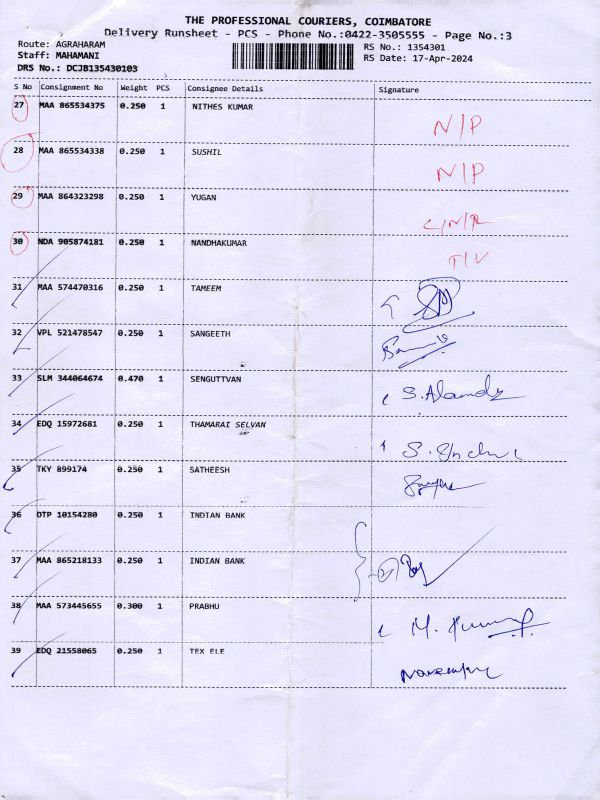 THE PROFESSIONAL COURIERS, COIMBATORE
Delivery Runsheet - PCS - Phone No.:0422-3505555 - Page No.:3
Route: AGRAHARAM
RS No.: 1354301
Staff: MAHAMANI
RS Date: 17-Apr-2024
DRS No.: DCJB135430103
S No Consignment No Weight PCS Consignee Details Signature
27 MAA 865534375 0.250 1 NITHES KUMAR N/P
28 MAA 865534338 0.250 1 SUSHIL N/P
29 MAA 864323298 0.250 1 YUGAN C/N/R
30 NDA 905874181 0.250 1 NANDHAKUMAR T/V
31 MAA 574470316 0.250 1 TAMEEM
32 VPL 521478547 0.250 1 SANGEETH
33 SLM 344064674 0.470 1 SENGUTTVAN
34 EDQ 15972681 0.250 1 THAMARAI SELVAN
35 TKY 899174 0.250 1 SATHEESH
36 OTP 10154280 0.250 1 INDIAN BANK
37 MAA 865218133 0.250 1 INDIAN BANK
38 MAA 573445655 0.300 1 PRABHU
39 EDQ 21558065 0.250 1 TEX ELE